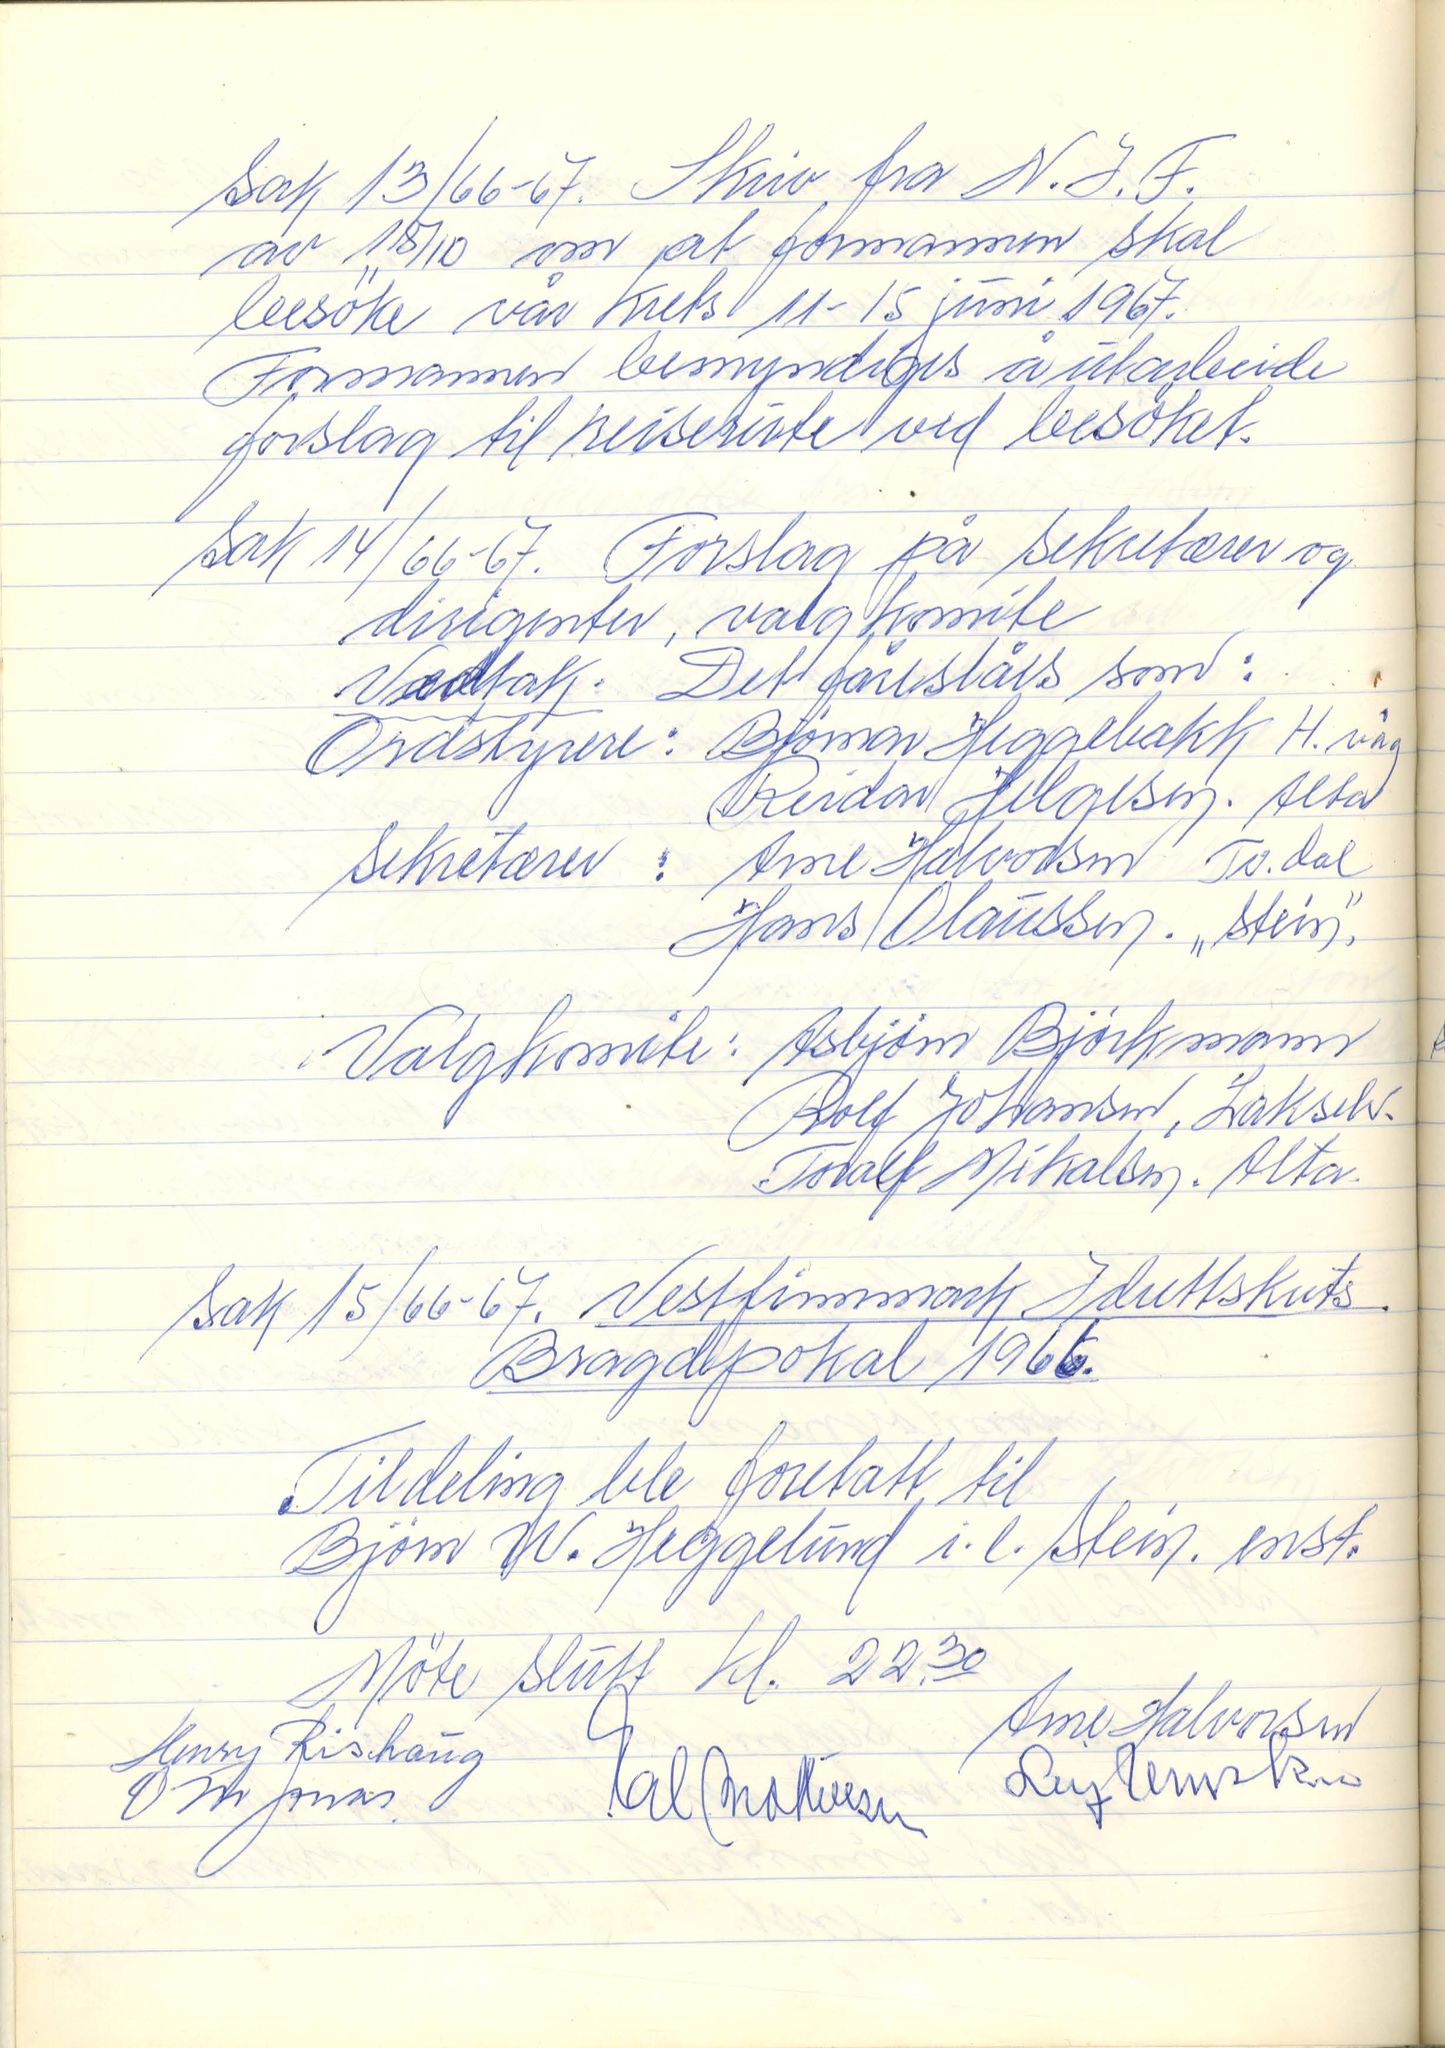 Sak 13/66-67. Skriv fra N.I.F.
av 18/10 om at formannen skal
besöke vår krets 11-15 juni 1967.
Formannen bemyndiges å utarbeide
forslag til reiserute ved besöket.
Sak 14/66-67. Forslag på sekretærer og
dirigenter, valgkomite
Vedtak. Det föreslåes som:
Ordstyrere: Bjömar Heggebakk H. våg
Reidar Helgesen. Alta
Sekretærer: Arne Halvorsen Tv. dal
Hans Olaussen. „Stein".
Valgkomite: Asbjörn Björkmann
Rolf Johansen, Lakselv.
Toralf Mikalsen. Alta.
Sak 15/66-67. Vestfinnmark Idrettskrets.
Bragdpokal 1966.
Tildeling ble foretatt til
Björn W. Heggelund i.l. Stein. enst.
Möte slutt kl. 22.30
Henry Rishaug
Arne Halvorsen